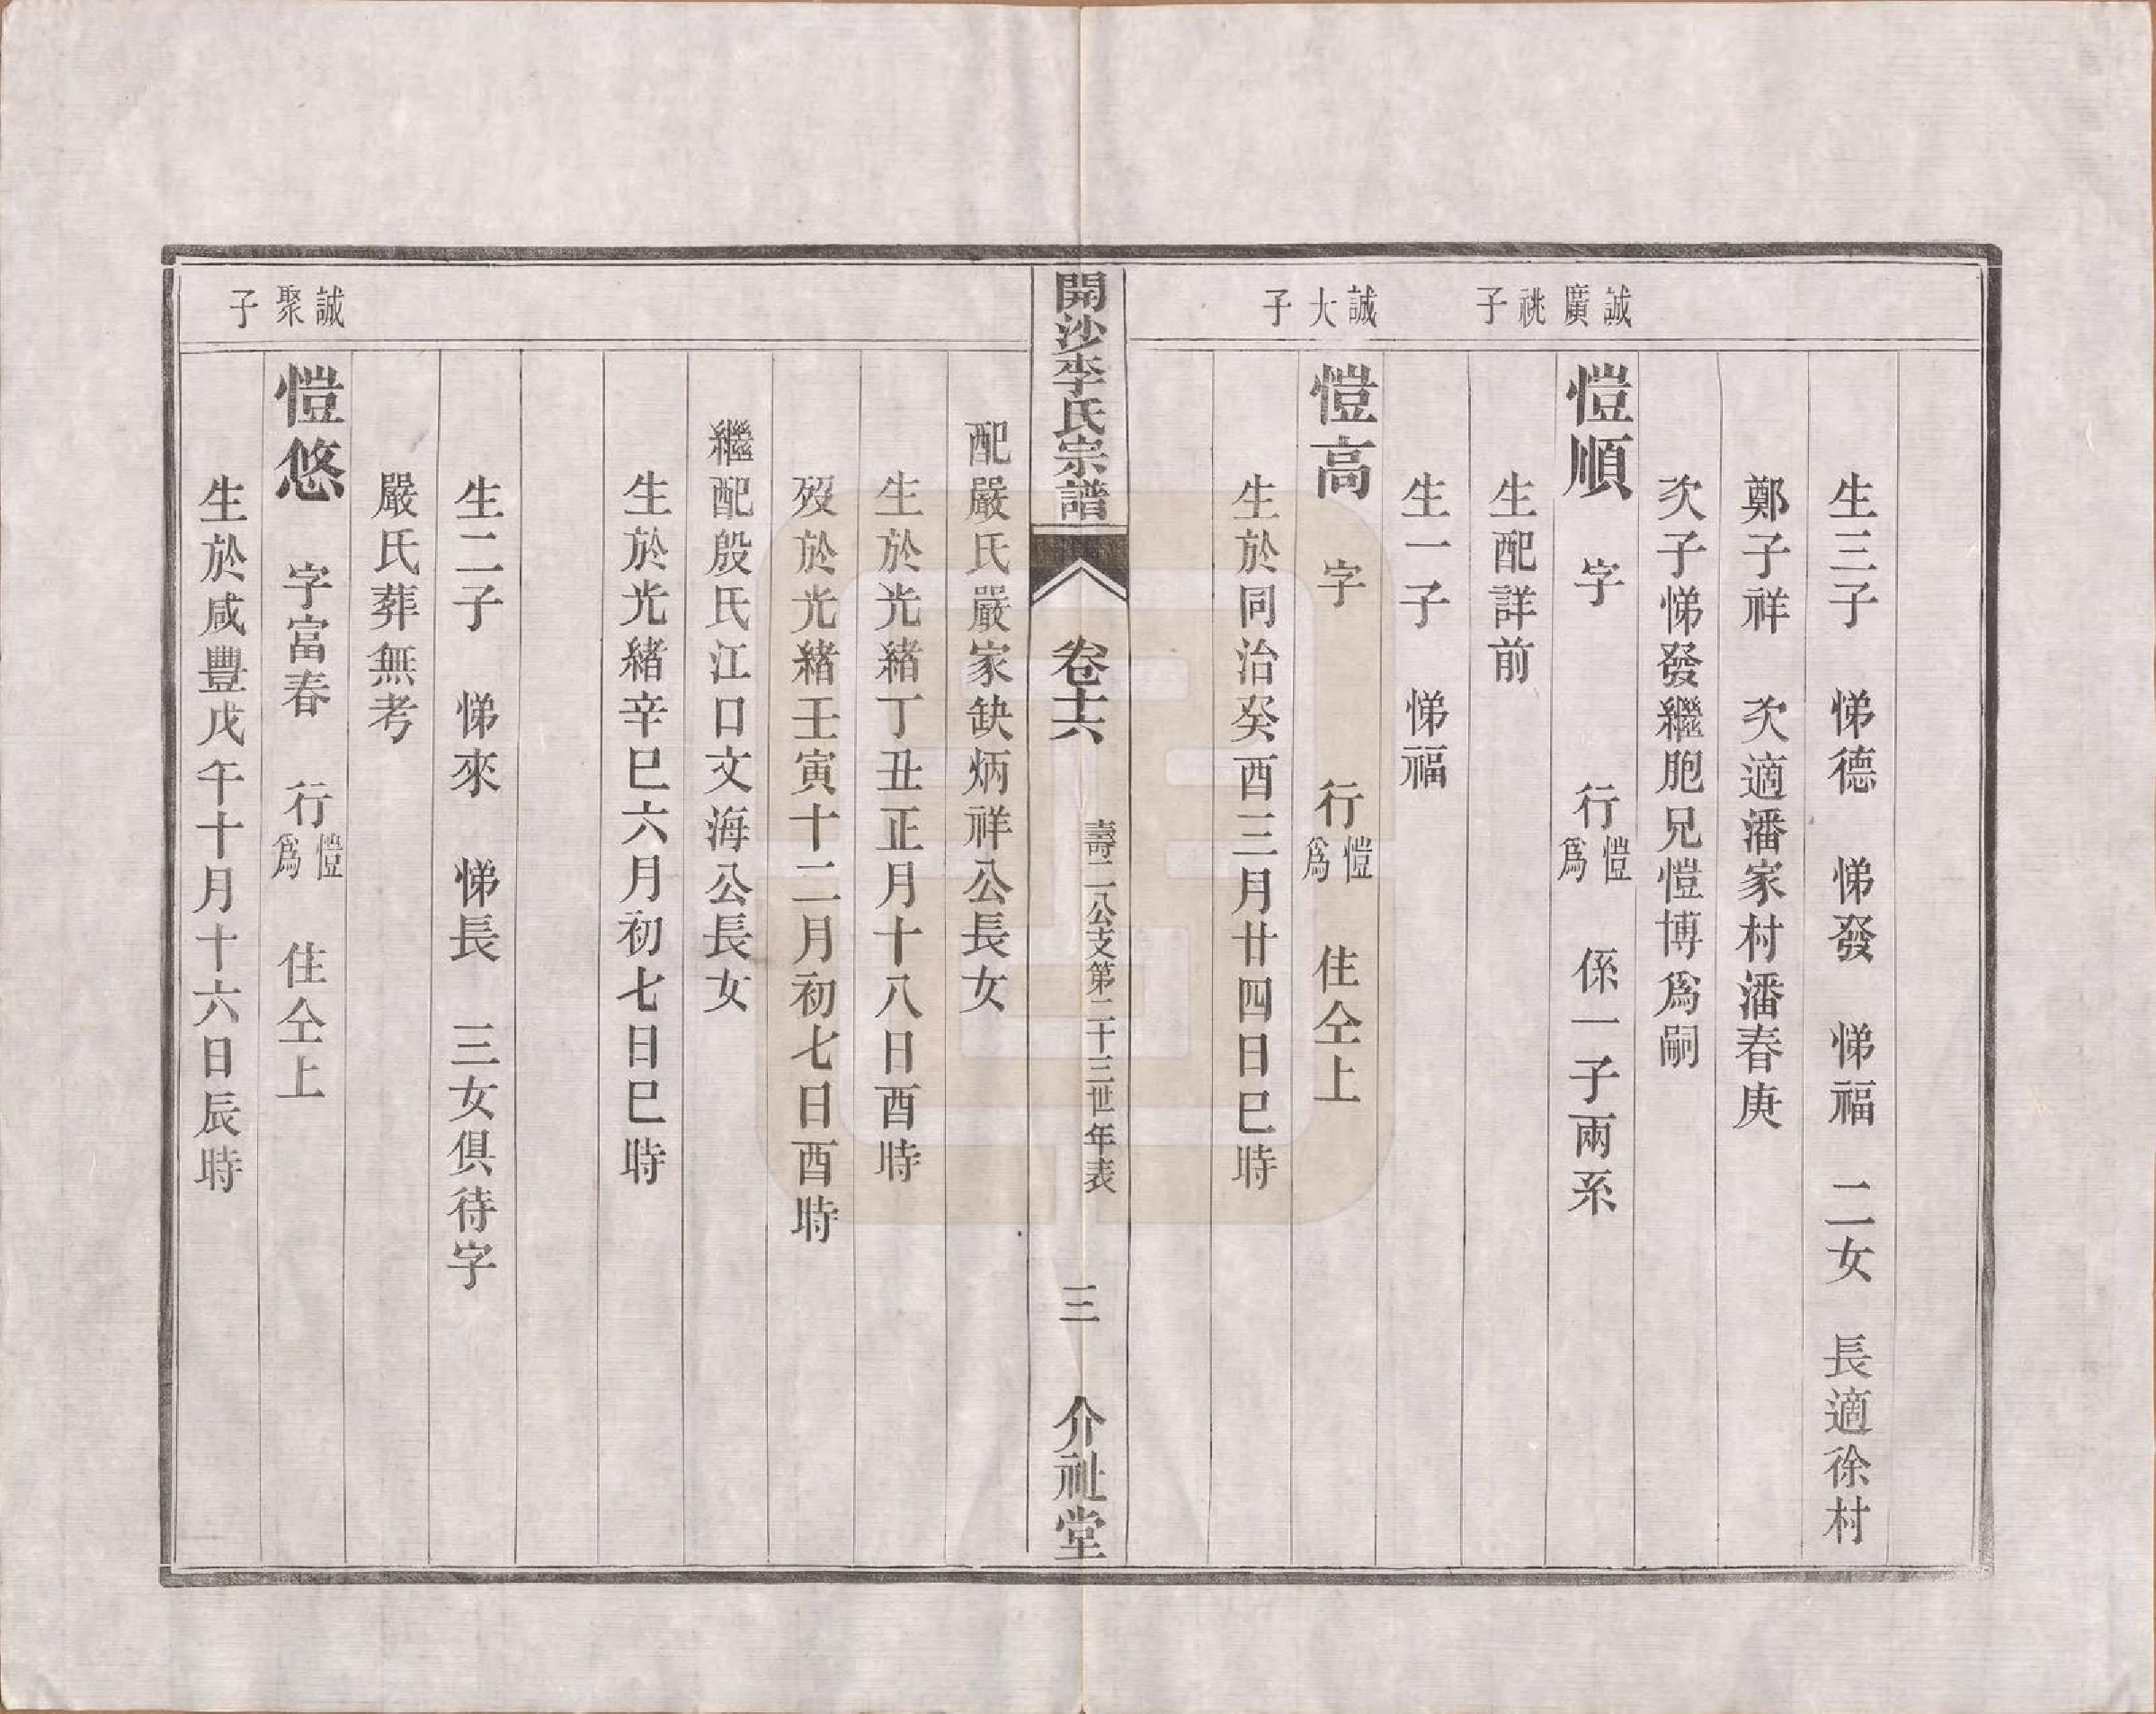 生三子　悌德　悌發　悌福　二女　長適徐村
鄭子祥　次適潘家村潘春庚
次子悌發繼胞兄愷博爲嗣
誠廣祧子
愷順　字　行愷爲　係一子兩系
生配詳前
生一子　悌福
誠大子
愷高　字　行愷爲　住仝上
生於同治癸酉三月廿四日巳時
開沙李氏宗譜　卷十六　壽二公支第二十三世年表　三　介祉堂
配嚴氏嚴家缺炳祥公長女
生於光緒丁丑正月十八日酉時
歿於光緒壬寅十二月初七日酉時
繼配殷氏江口文海公長女
生於光緒辛巳六月初七日巳時
生二子　悌來　悌長　三女俱待字
嚴氏葬無考
誠聚子
愷悠　字富春　行愷爲　住仝上
生於咸豐戊午十月十六日辰時